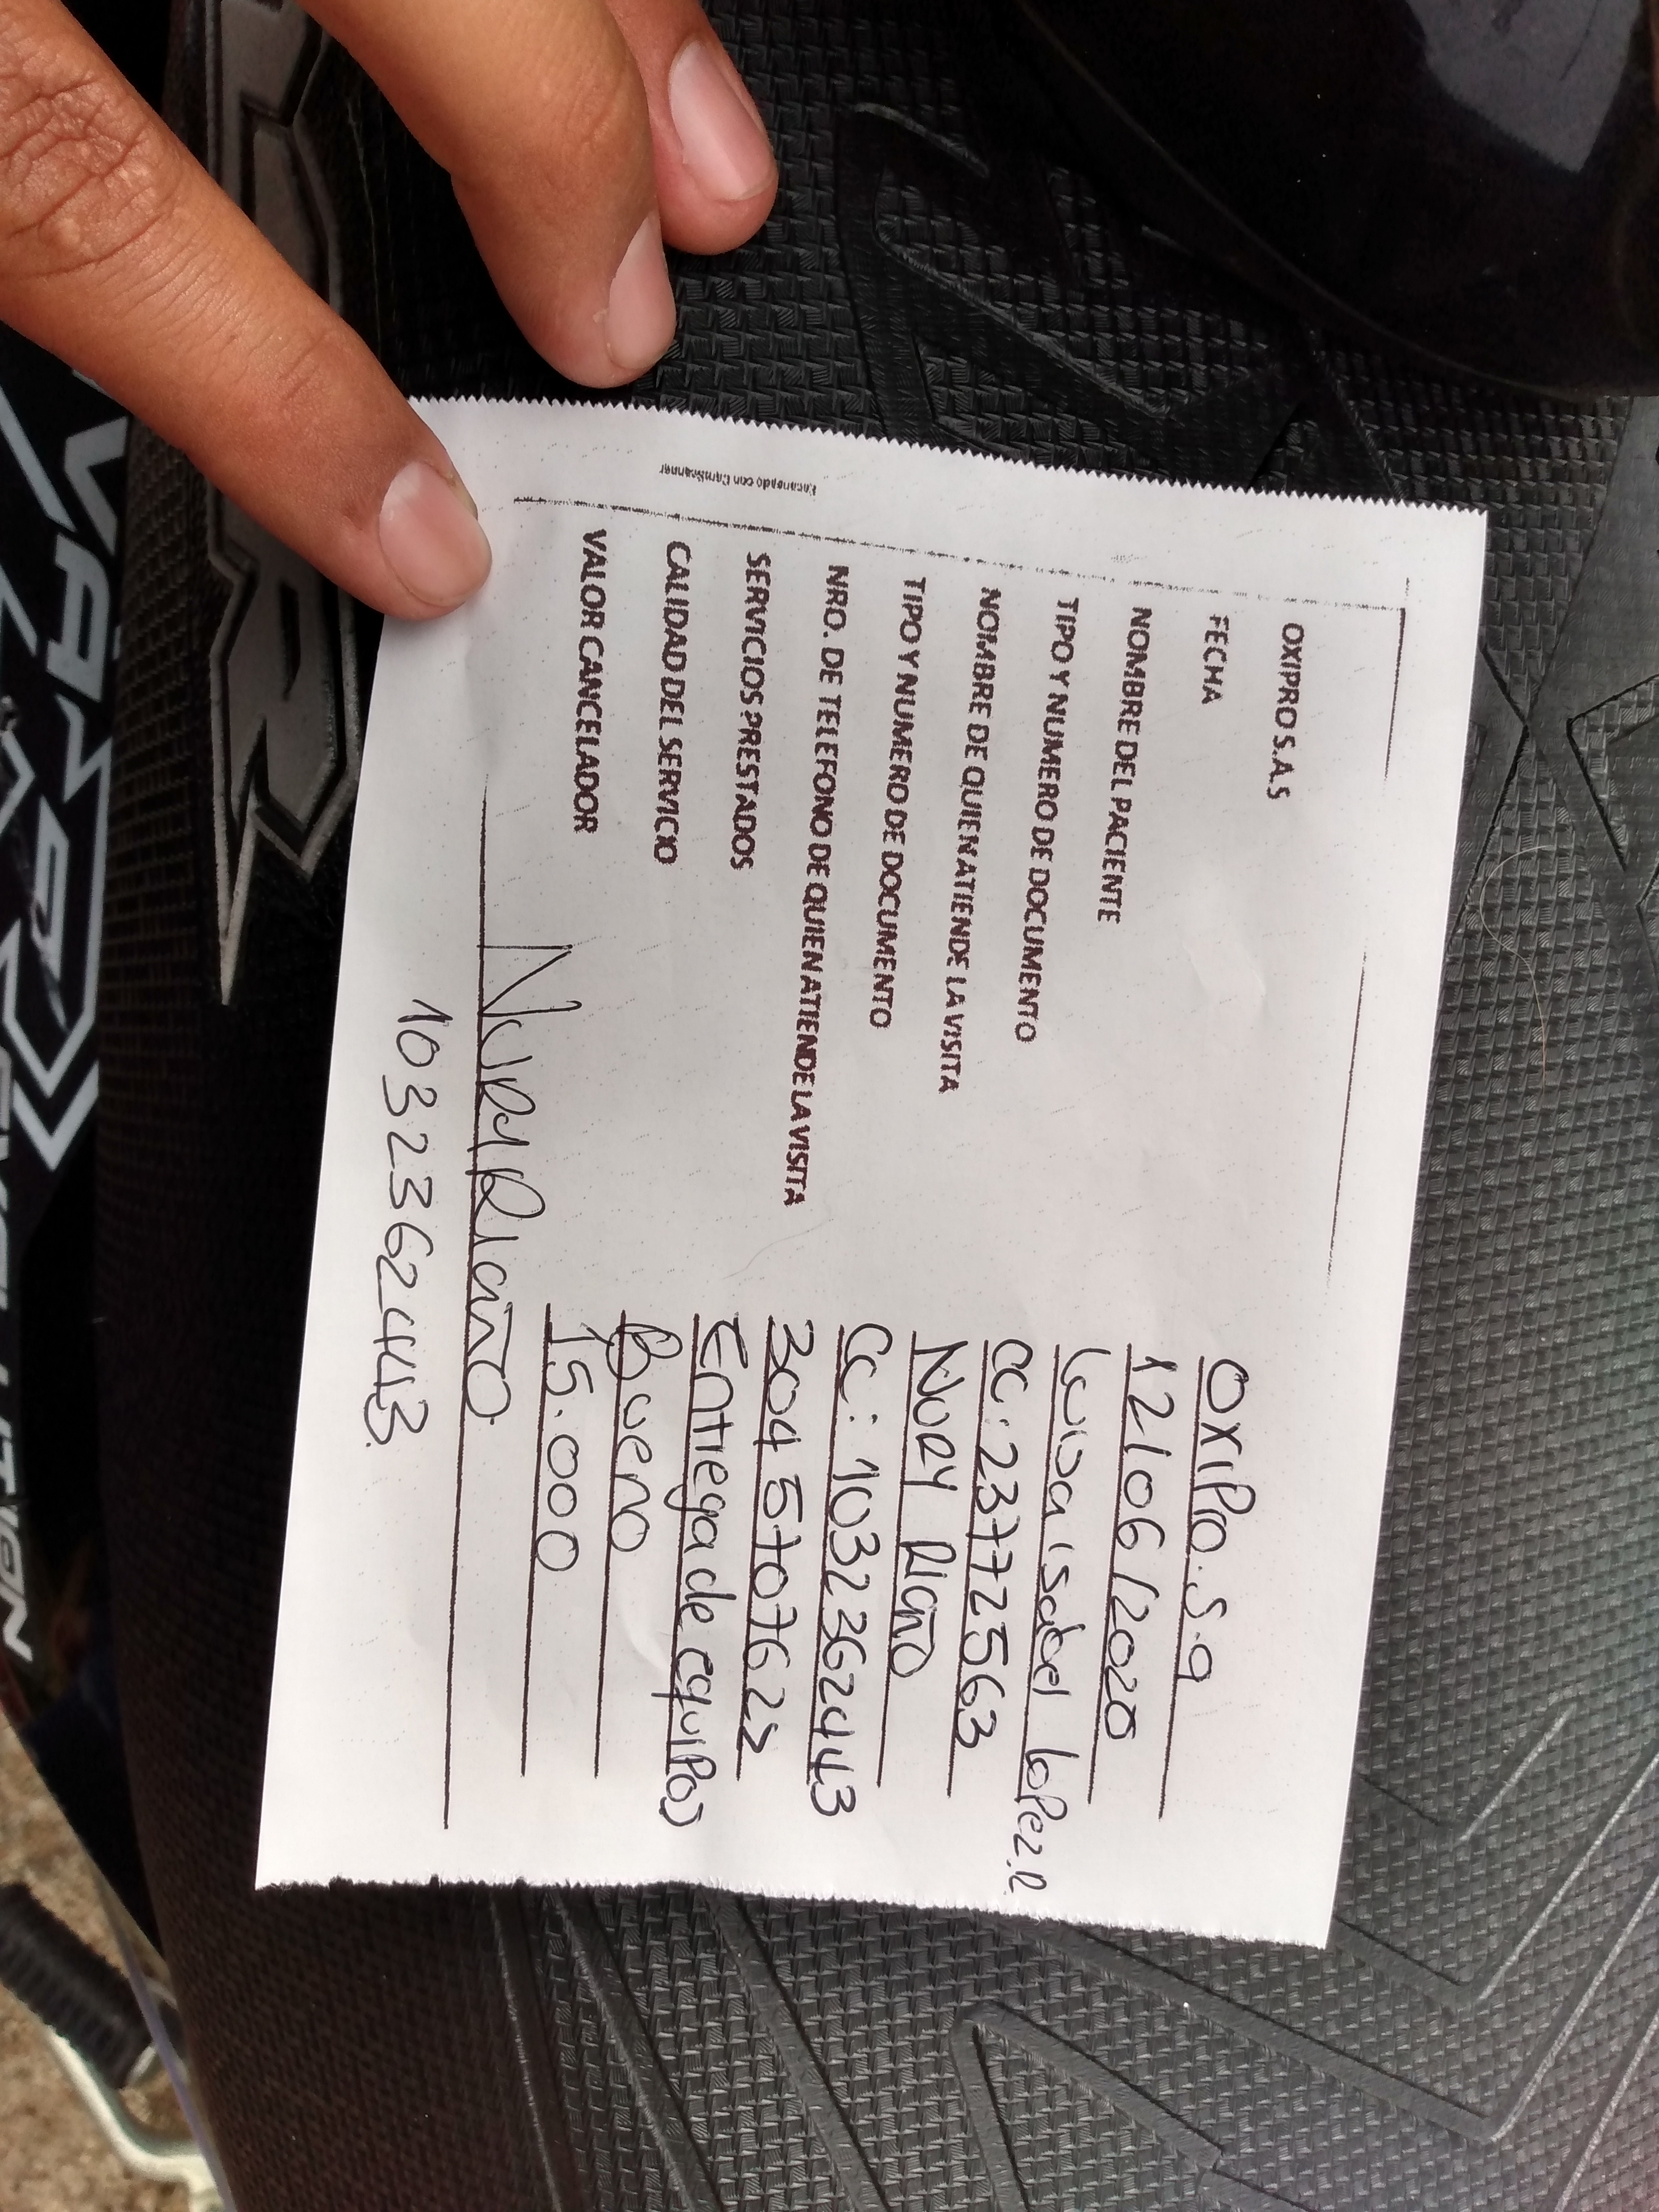 OXIPRO S.A.S OXIPro.S.a
FECHA 12/06/2020
NOMBRE DEL PACIENTE Luisa isabel loPez.R
TIPO Y NUMERO DE DOCUMENTO CC:23772563
NOMBRE DE QUIEN ATIENDE LA VISITA NURY RIaÑO
TIPO Y NUMERO DE DOCUMENTO CC:1032362443
NRO. DE TELEFONO DE QUIEN ATIENDE LA VISITA 304 5707622
SERVICIOS PRESTADOS Entrega de equiPos
CALIDAD DEL SERVICIO Bueno
VALOR CANCELADOR 15.000
NURY RIaÑO.
1032362443.
Escaneado con CamScanner